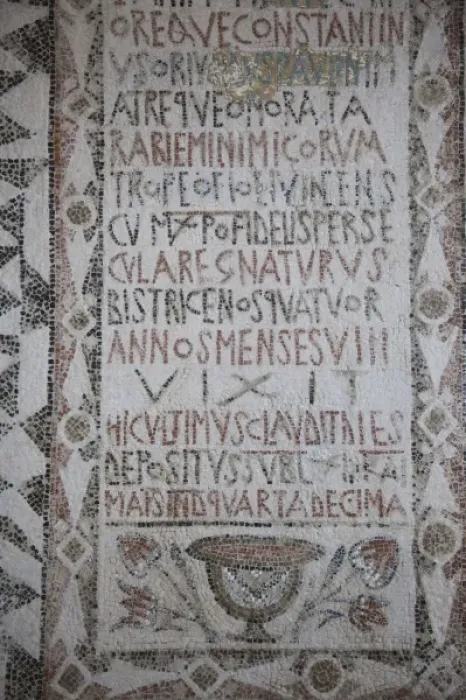 OREQVECONSTANTIN
VSORIV
ATREQVEONORATA
RABIEMINIMICORVM
TROFEOFIDEIVINCENS
CVMXPOFIDELISPERSE
CVLAREGNATVRVS
BISTRICENOSQVATVOR
ANNOSMENSESVIII
VIXIT
HICVLTIMVSCLAVDITDIES
DEPOSITVSSVB
MAISINDQVARTADECIMA